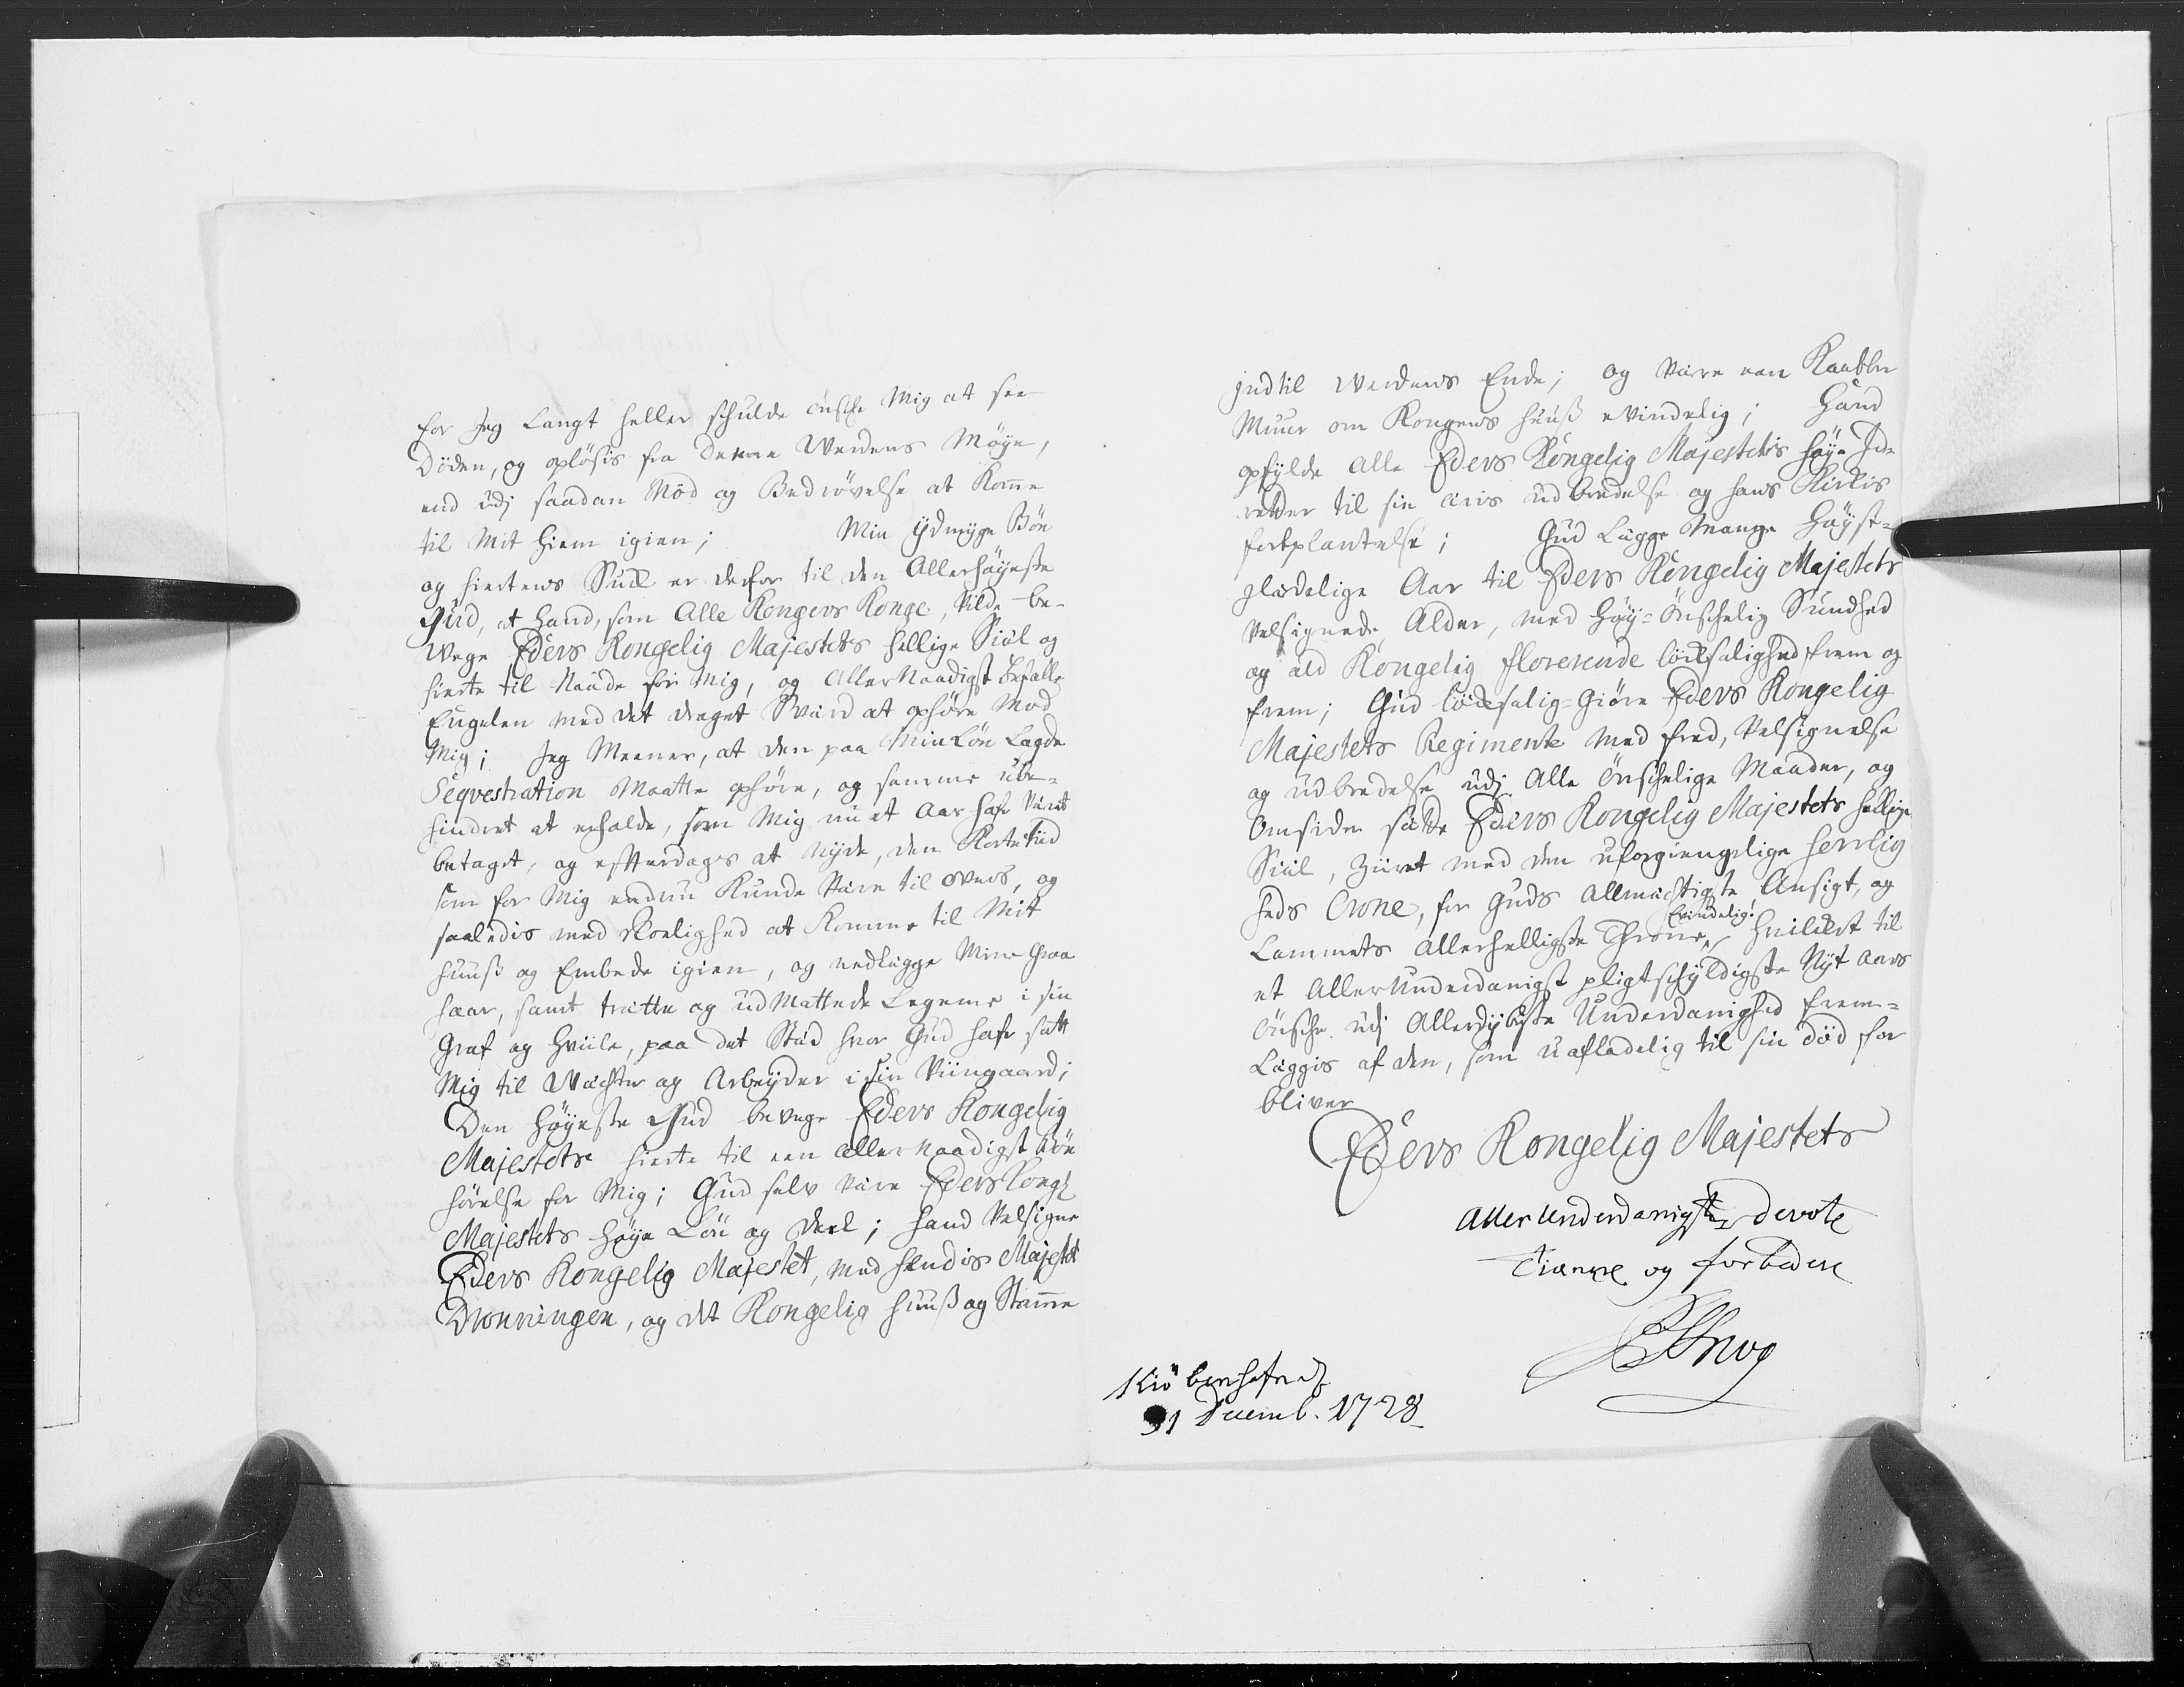 for Jeg Langt heller schulde önsche Mig at see
Döden, og oplösis fra denne Werdens Möye,
end udj saadan Nöd og Bedrövelse at Komme
til Mit Hiem igien; Min ÿdmyge Bön
og hiertens Suck er derfor til den Allerhöyeste
Gud, at Hand, som Alle Kongers Konge, Vilde be-
wege Eders Kongelig Majestets hellige Siæl og
hierte til Naade for Mig, og Aller Naadigst befalle
Engelen med det draget Sværd at ophöre Mod
Mig; Jeg Meener, at den paa Min Lön Lagde
Seqvestration Maatte ophöre, og samme ube-
hindret at erholde, som Mig nu et Aar hafr Været
betaget, og effterdags at Nyde, den Korte tiid
som for Mig endnu Kunde Være til overs, og
saaledis med Roelighed at Komme til Mit
Huuß og Embede igien, og nedlægge Mine Graa
haar, samt trætte og udMattede Legeme i sin
Graf og Hviile, paa det Stæd hvor Gud hafr satt
Mig til Wæchter og Arbeyder i sin Viingaard;
Den Höyeste Gud bevege Eders Kongelig
Majestets hierte til een aller Naadigst bön
hörelse for Mig; Gud selv Være Eders Kongl
Majestets Höye Lön og deel; Hand Velsigne
Eders Kongelig Majestet, med hendis Majestet
Dronningen, og det Kongelig Huuß og Stamme
indtil Werdens Ende; og Være een Kaabber
Muur om Kongens Huuß evindelig; Hand
opfylde Alle Eders Kongelig Majestets Höye Id-
retter til sin æris udbredelse og hans Kirkis
forplantelse; Gud Lægge Mange Höyst-
glædelige Aar til Eders Kongelig Majestets
Velsignede Alder, med Höy-önschelig Sundhed
og ald Kongelig florerende löcksalighed frem og
frem; Gud löcksalig-Giöre Eders Kongelig
Majestets Regimente med fred, Velsignelse
og udbredelse udj Alle önschelige Maader, og
Omsider sætte Eders Kongelig Majestets hellige
Siæl, ziiret med den uforgiengelige Herrlig
heds Crone, for Guds Allmæchtigste Ansigt, og
Lammets Allerhelligste Throne, Evindelig! Hvilcket til
et AllerUnderdanigst pligtschyldigste Nÿt Aars
önsche udj Allerdybeste Underdanighed frem-
Læggis af den, som uafladelig til sin död for
bliver
Eders Kongelig Majestets
AllerUnderdanigste devote
Tienere og forbedere
Kiöbenhafn d
31 Decemb. 1728